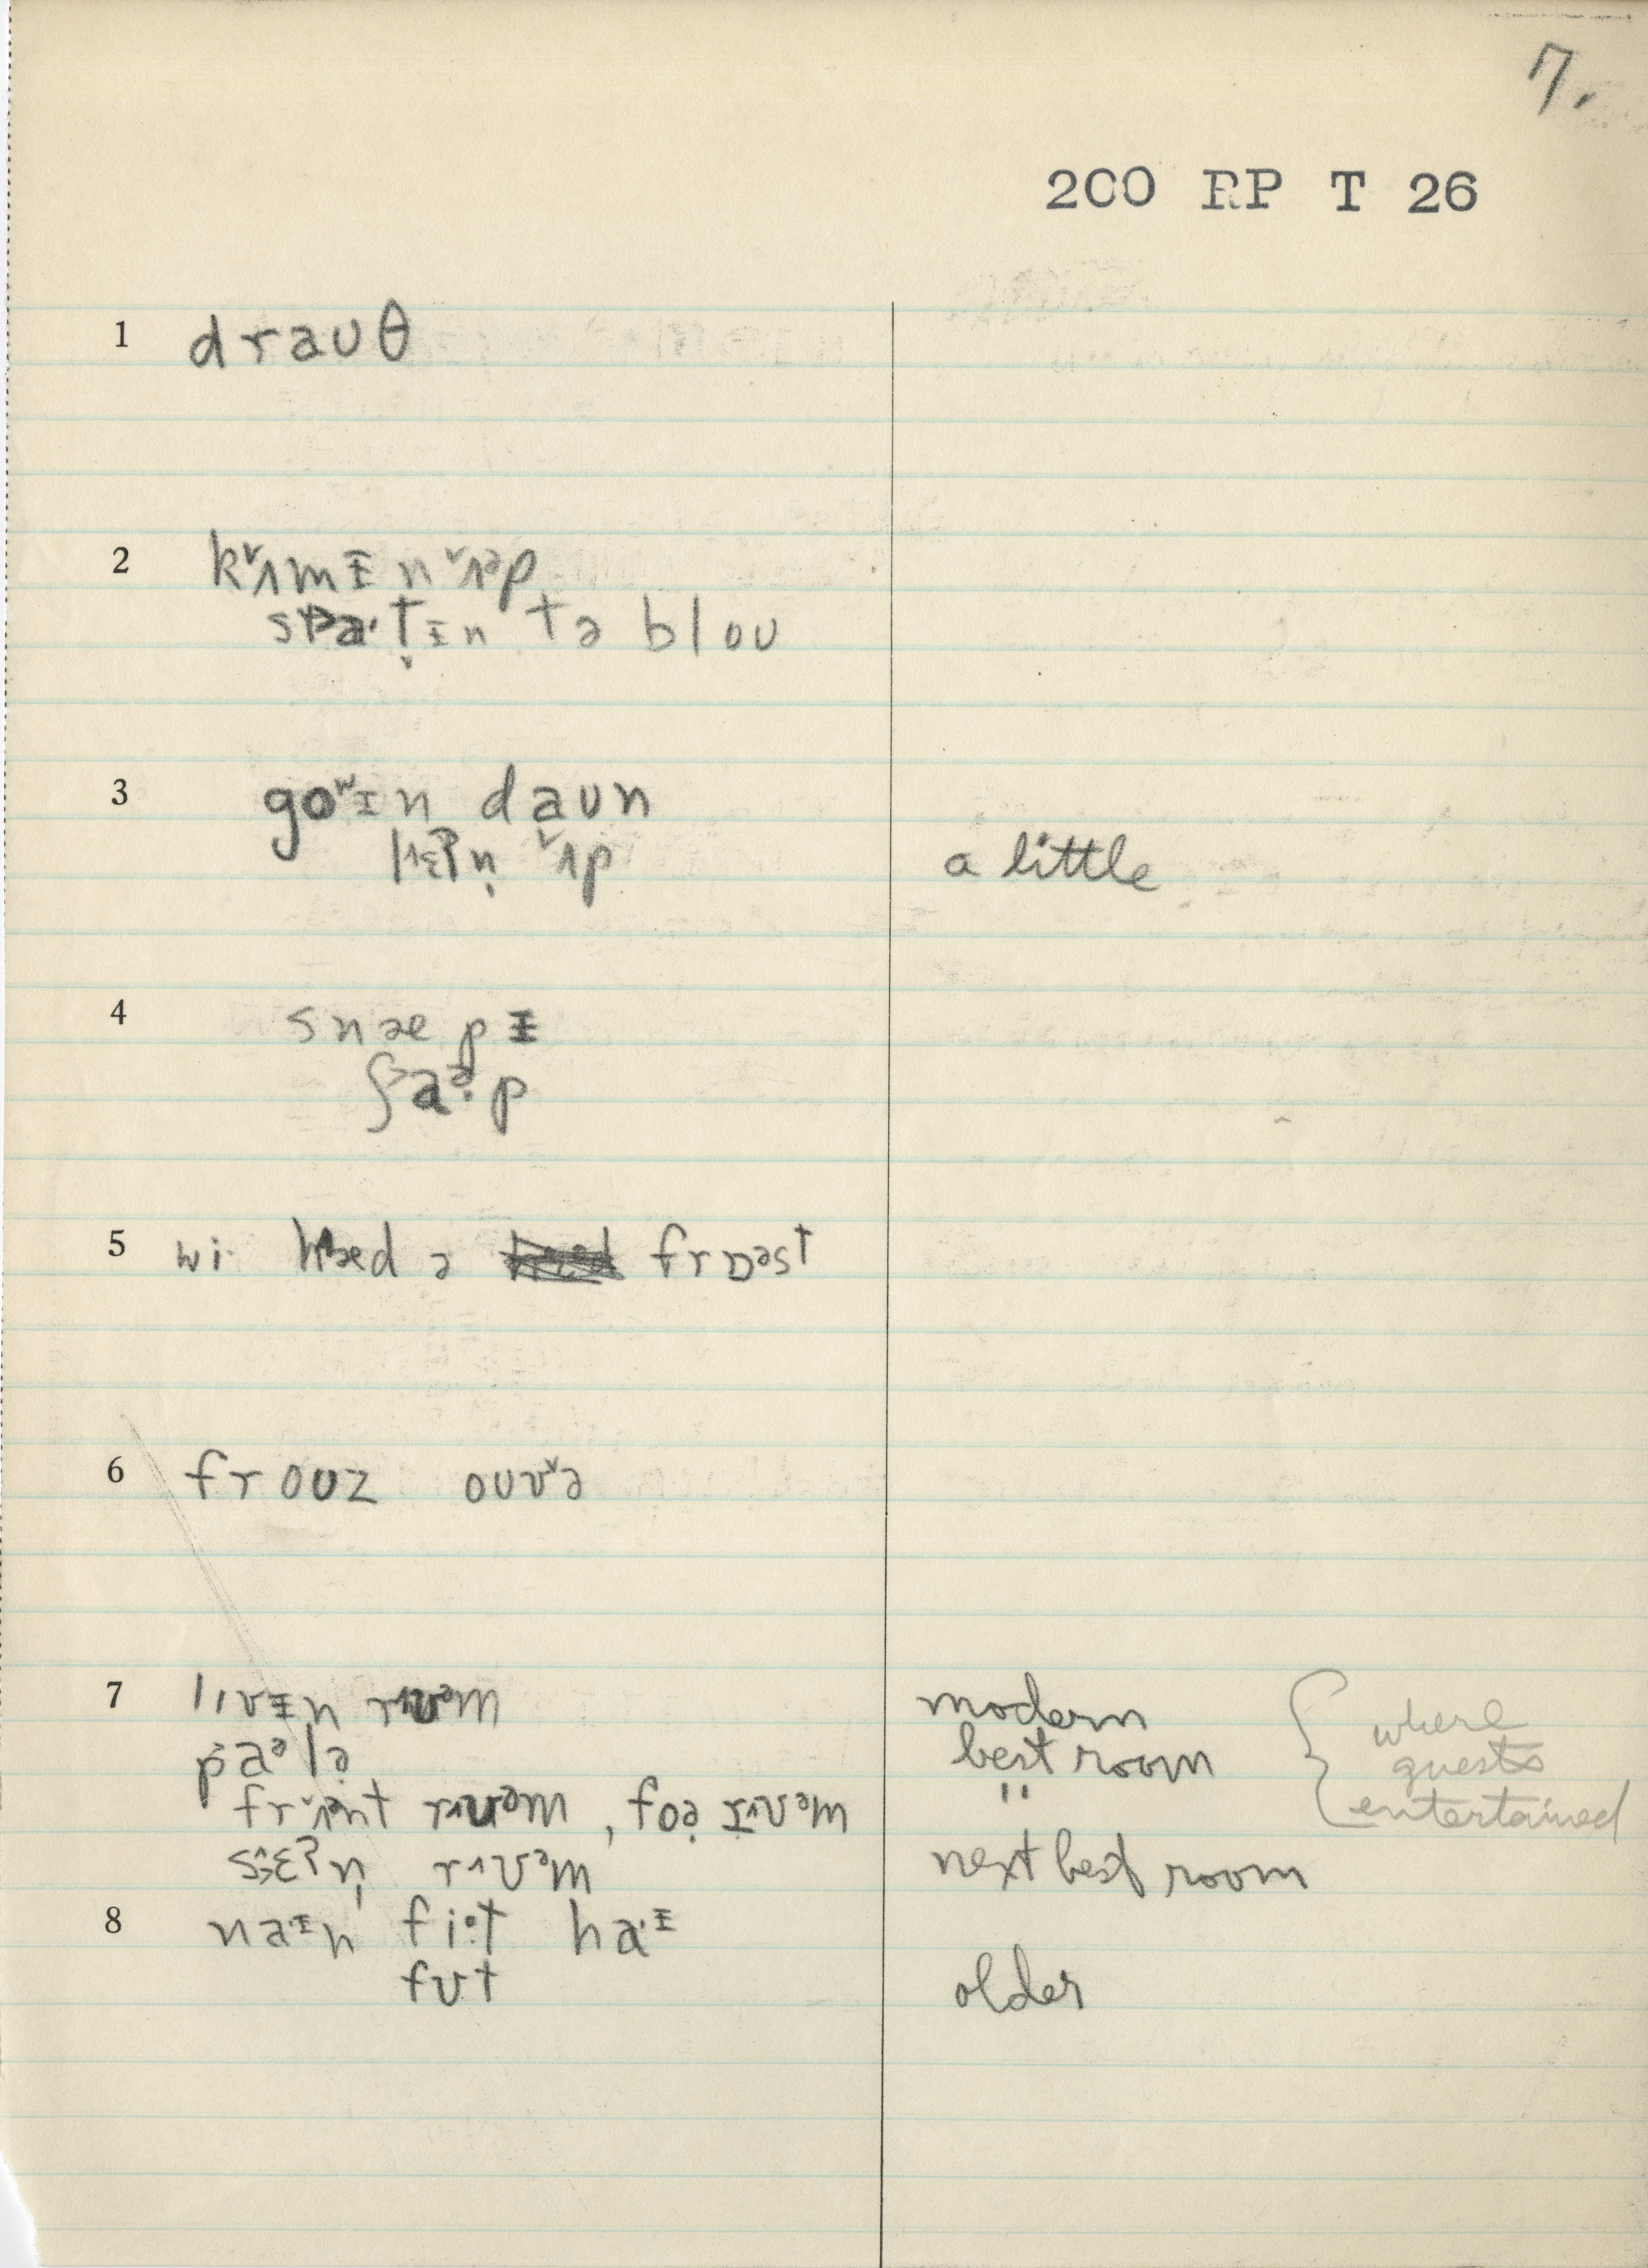 7.
200 RP T 26
1 draʊθ
2 k˅ʌmɪ̵n ˅ʌᵊp
sta·t̬ɪ̵n tə bloʊ
3 goʷɪ̵n daʊn
lɛʔn̩ ˅ʌp a little
4 snæpɪ̵
ʃaᵊ·p
5 wi· hæd ə frɒᵊst
6 froʊz oʊv˅ə
7 lɪvɪ̵n rʊᵊm modern
paᵊlə best room { where guests entertained
fr˅ʌnt rʊᵊm, foə rʊᵊm "
sɛʔn̩ rʊᵊm next best room
8 naɪ̵n fi·t ha·ɪ̵
fʊt older